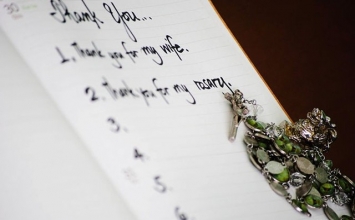 30
Thank You...
1. thank you for my wife.
2. thank you for my rosary.
3.
4.
5.
6.